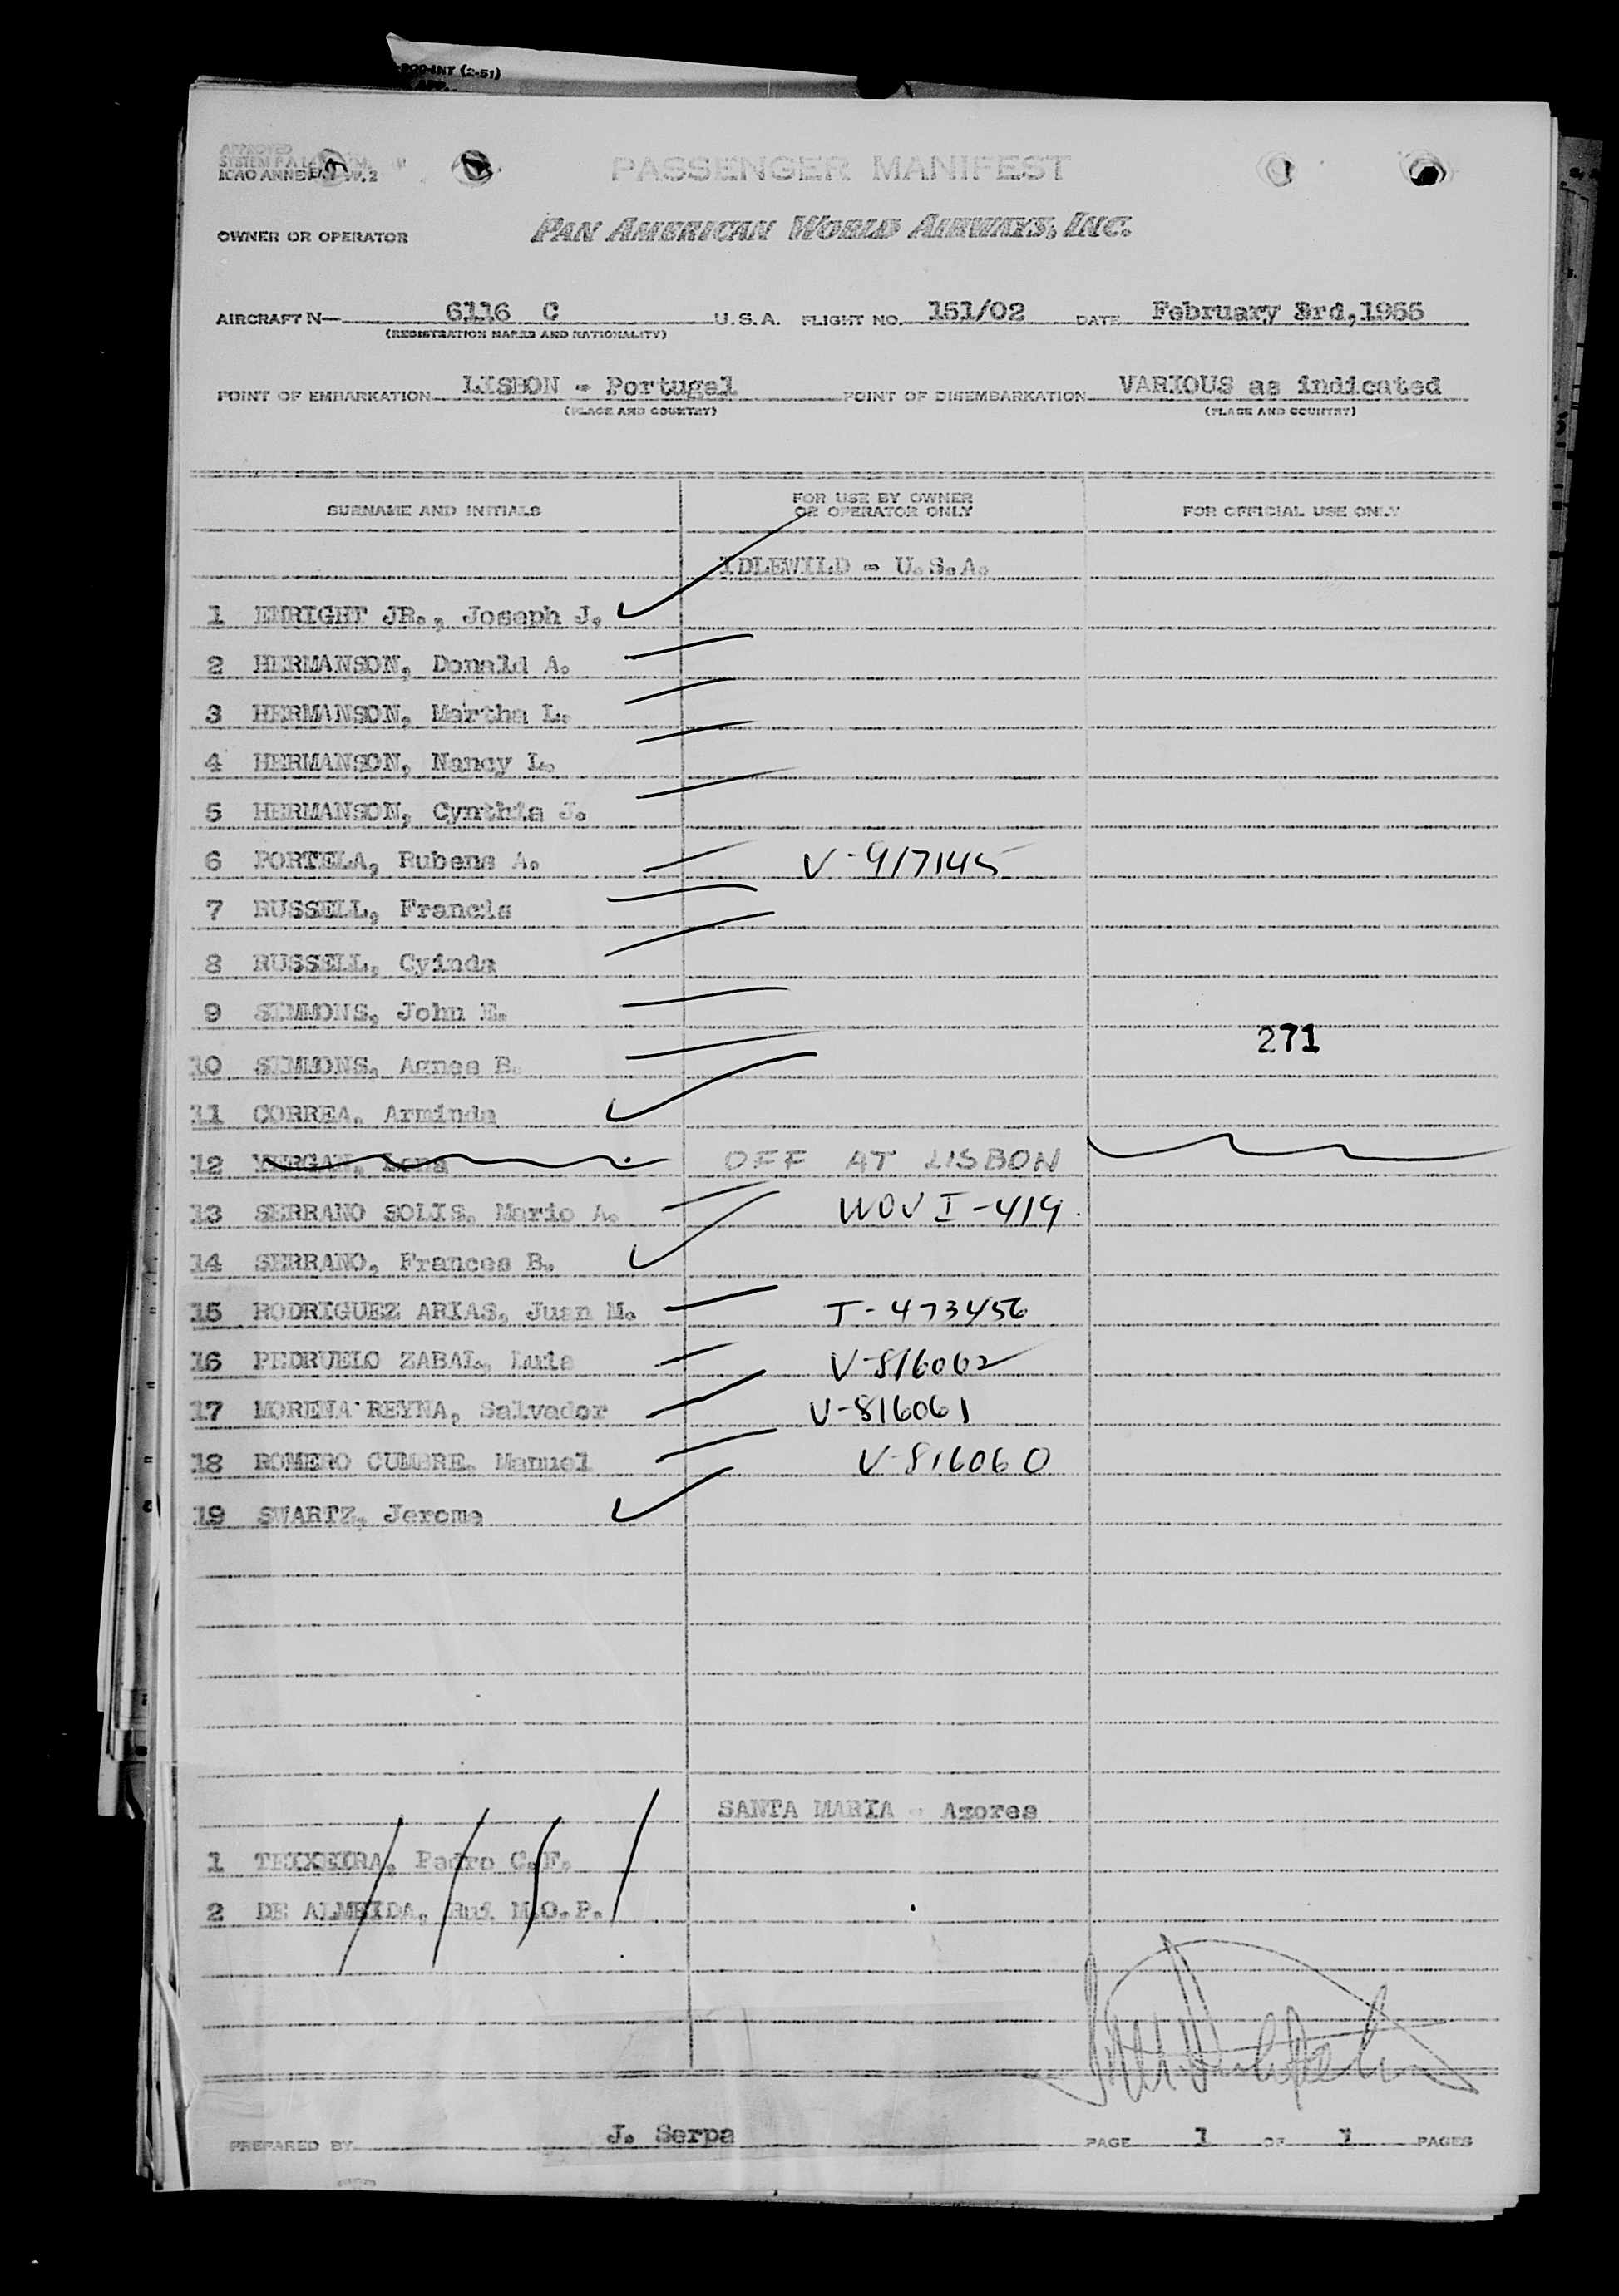 300-INT (2-51)
APPROVED
PASSENGER MANIFEST
ICAO ANNEX
OWNER OR OPERATOR PAN AMERICAN WORLD AIRWAYS, INC.
AIRCRAFT N— 6116 C U.S.A. FLIGHT NO. 151/02 DATE February 3rd,1955
(REGISTRATION MARKS AND NATIONALITY)
POINT OF EMBARKATION LISBON - Portugal POINT OF DISEMBARKATION VARIOUS as indicated
(PLACE AND COUNTRY) (PLACE AND COUNTRY)
SURNAME AND INITIALS FOR USE BY OWNER OR OPERATOR ONLY FOR OFFICIAL USE ONLY
IDLEWILD - U.S.A.
1 ENRIGHT JR., Joseph J.
2 HERMANSON, Donald A.
3 HERMANSON, Martha L.
4 HERMANSON, Nancy L.
5 HERMANSON, Cynthia J.
6 PORTELA, Rubens A. V-917145
7 RUSSELL, Francis
8 RUSSELL, Cyinda
9 SIMMONS, John E.
271
10 SIMMONS, Agnes B.
11 CORREA, Arminda
12 YERGAN, Lena OFF AT LISBON
13 SERRANO SOLIS, Mario A. WOV I-419
14 SERRANO, Frances B.
15 RODRIGUEZ ARIAS, Juan M. T-473456
16 PEDRUELO ZABAL, Luis V-816062
17 MORENA REYNA, Salvador V-816061
18 ROMERO CUMBRE, Manuel V-816060
19 SWARTZ, Jerome
SANTA MARIA - Azores
1 TEIXEIRA, Pedro C.F.
2 DE ALMEIDA, Rui M.O.P.
PREPARED BY J. Serpa PAGE 1 OF 1 PAGES